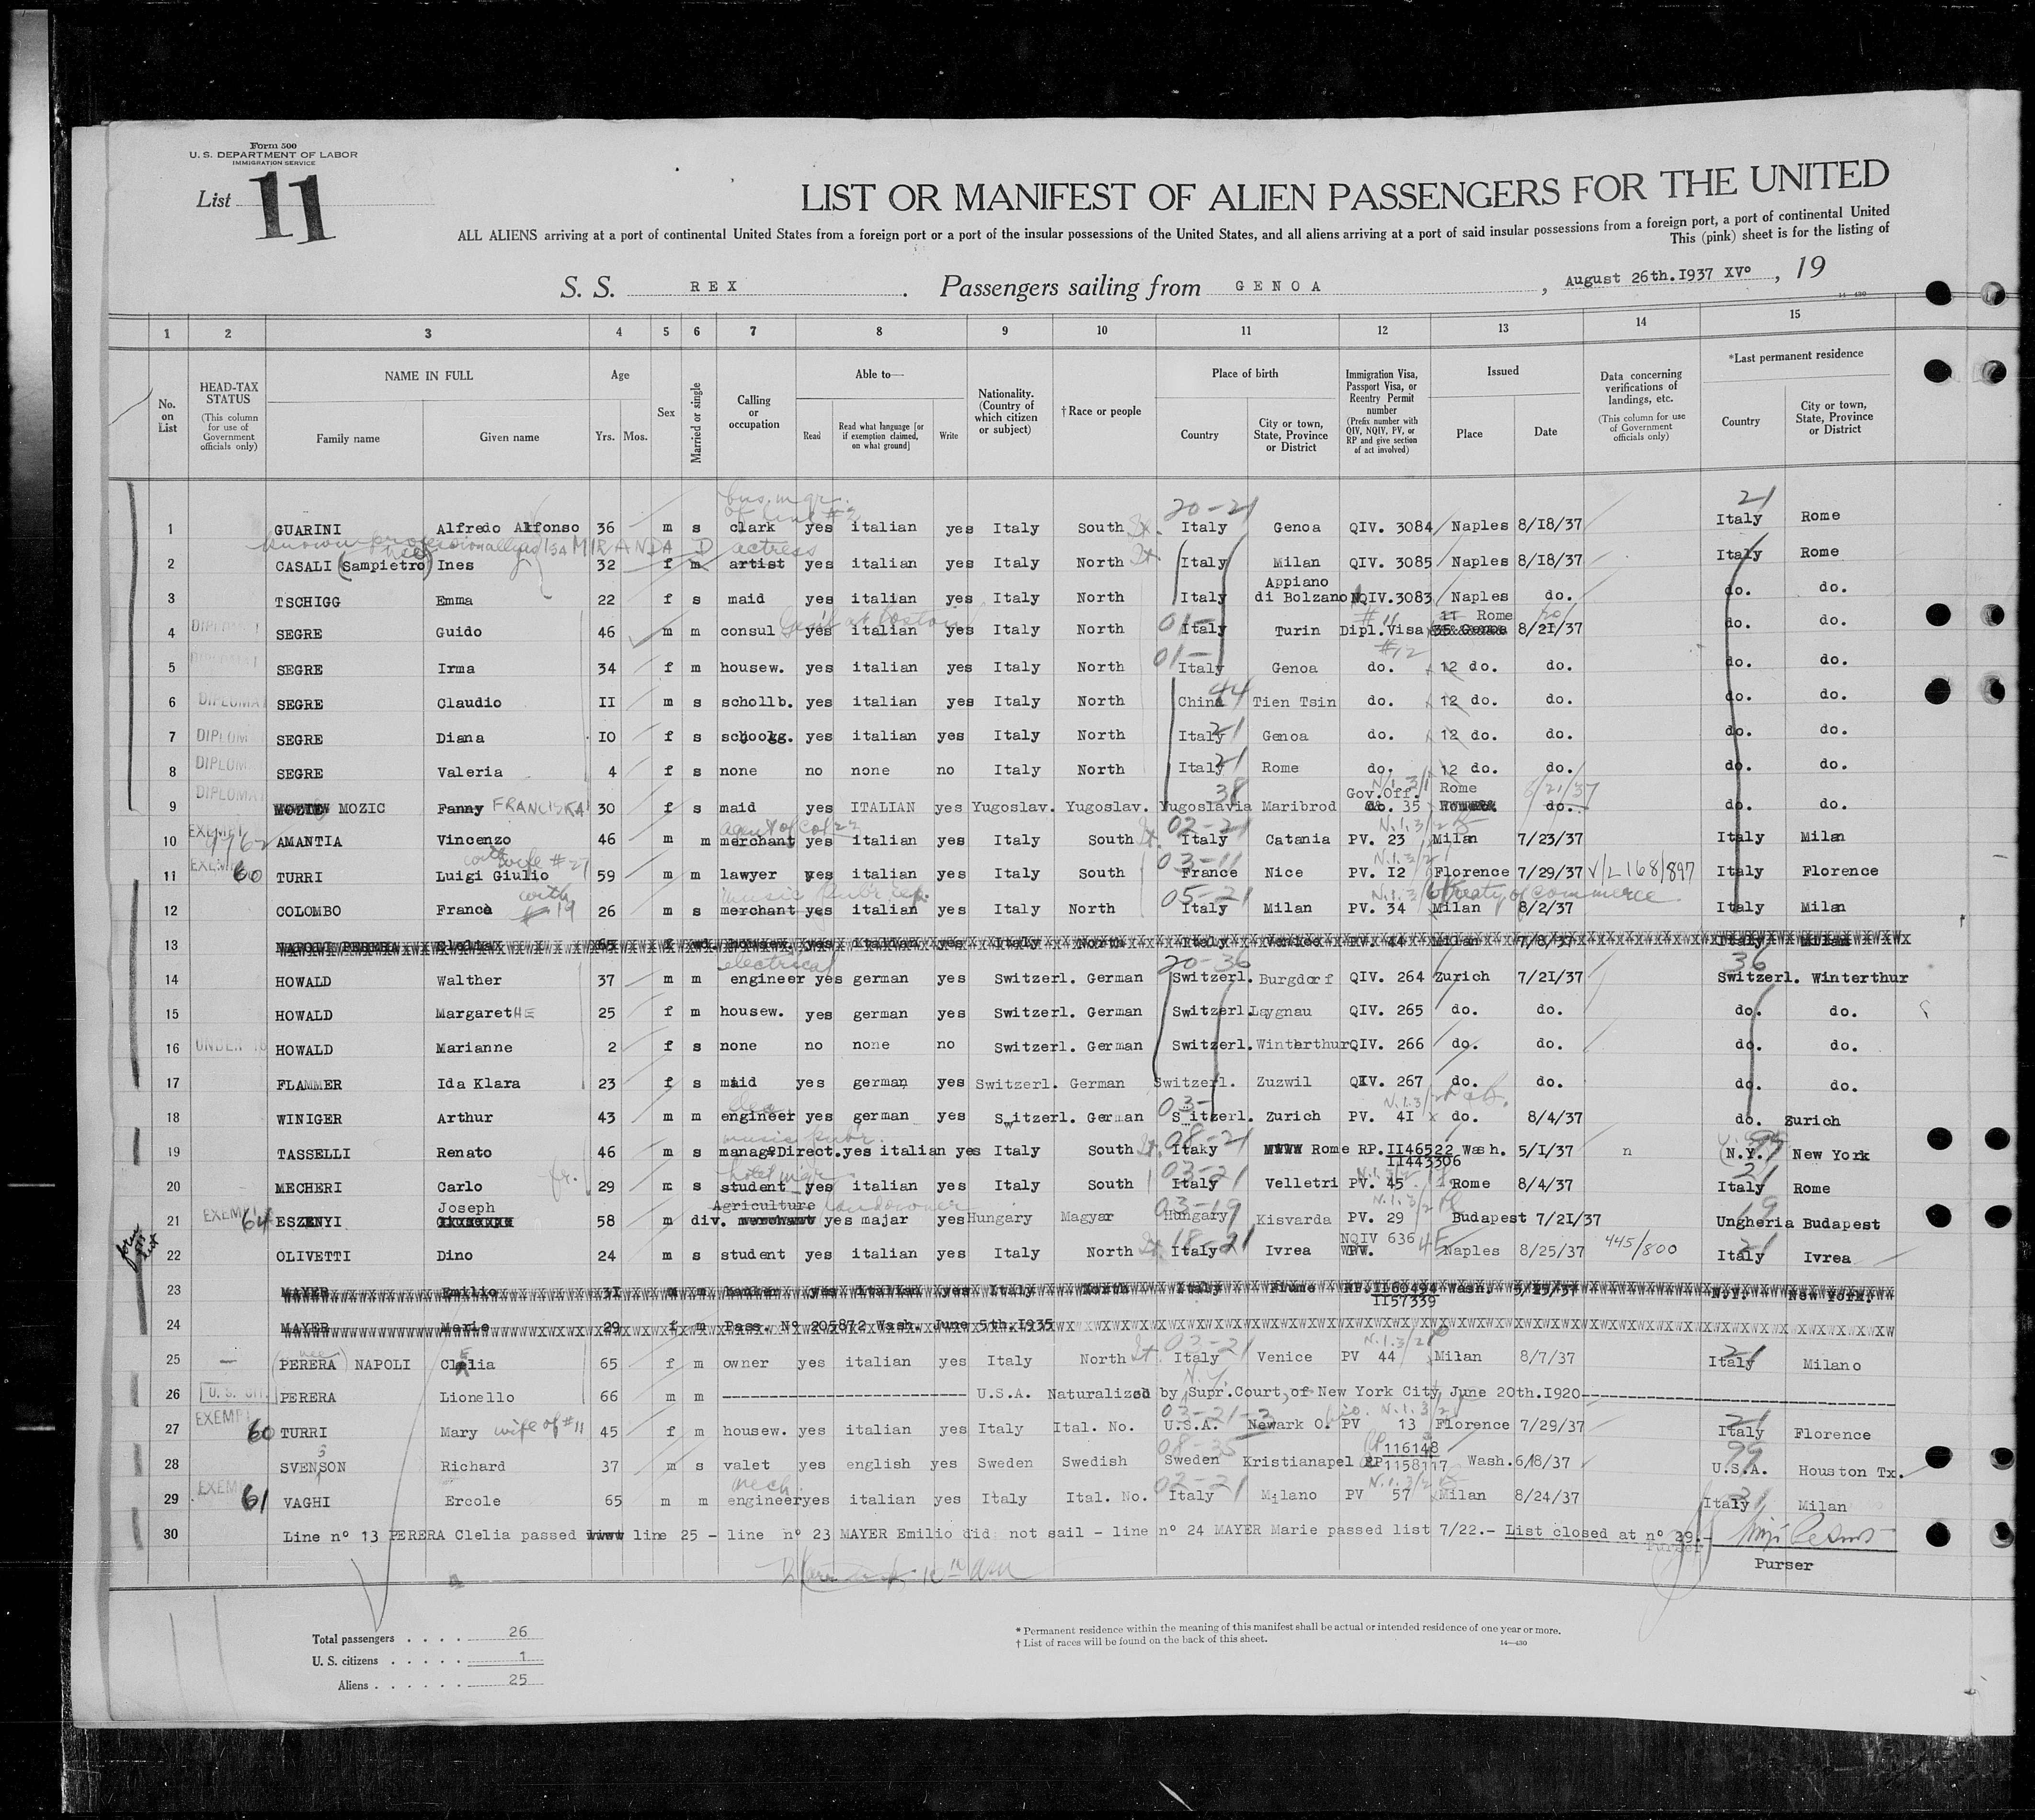 Form 500
U. S. DEPARTMENT OF LABOR
IMMIGRATION SERVICE
List 11
LIST OR MANIFEST OF ALIEN PASSENGERS FOR THE UNITED
ALL ALIENS arriving at a port of continental United States from a foreign port or a port of the insular possessions of the United States, and all aliens arriving at a port of said insular possessions from a foreign port, a port of continental United
This (pink) sheet is for the listing of
S. S. REX . Passengers sailing from GENOA , August 26th.I937 XVº , 19
14—430
1 2 3 4 5 6 7 8 9 10 11 12 13 14 15
No. on List
HEAD-TAX STATUS (This column for use of Government officials only)
NAME IN FULL Family name Given name
Age Yrs. Mos.
Sex
Married or single
Calling or occupation
Able to— Read Read what language [or if exemption claimed, on what ground] Write
Nationality. (Country of which citizen or subject)
† Race or people
Place of birth Country City or town, State, Province or District
Immigration Visa, Passport Visa, or Reentry Permit number (Prefix number with QIV, NQIV, PV, or RP and give section of act involved)
Issued Place Date
Data concerning verifications of landings, etc. (This column for use of Government officials only)
*Last permanent residence Country City or town, State, Province or District
bus. mgr. 20-21 21
of line #2
1 GUARINI Alfredo Alfonso 36 m s clark yes italian yes Italy South Italy Genoa QIV. 3084 Naples 8/I8/37 Italy Rome
known professionally as Isa MIRANDA D actress
2 CASALI (nee Sampietro) Ines 32 f m artist yes italian yes Italy North Italy Milan QIV. 3085 Naples 8/I8/37 Italy Rome
3 TSCHIGG Emma 22 f s maid yes italian yes Italy North Italy Appiano di Bolzano NQIV.3083 Naples do. do. do.
Gen'l at Boston #11
4 DIPLOMAT SEGRE Guido 46 m m consul yes italian yes Italy North 01- Italy Turin Dipl.Visa 35 Genoa 11 Rome 8/2I/37 do. do.
#12
5 DIPLOMAT SEGRE Irma 34 f m housew. yes italian yes Italy North 01- Italy Genoa do. 12 do. do. do. do.
6 DIPLOMA SEGRE Claudio II m s schollb. yes italian yes Italy North China 44 Tien Tsin do. 12 do. do. do. do.
7 DIPLOM SEGRE Diana IO f s schoolg. yes italian yes Italy North Italy 21 Genoa do. 12 do. do. do. do.
8 DIPLOM SEGRE Valeria 4 f s none no none no Italy North Italy 21 Rome do. 12 do. do. do. do.
9 DIPLOMA MOZIC Fanny FRANCISKA 30 f s maid yes ITALIAN yes Yugoslav. Yugoslav. Yugoslavia 38 Maribrod N.I.3/1 Gov.Off. do. 35 Rome 8/21/37 do. do. do.
10 EXEMPT AMANTIA Vincenzo 46 m m merchant yes italian yes Italy South 02-21 Italy Catania N.I.3/2 PV. 23 Milan 7/23/37 Italy Milan
11 EXEM 60 TURRI Luigi Giulio with wife #27 59 m m lawyer yes italian yes Italy South 03-11 France Nice N.I.3/2 PV. I2 Florence 7/29/37 V/L 168/897 Italy Florence
12 COLOMBO France with #19 26 m s merchant yes italian yes Italy North 05-21 Italy Milan N.I.3/6 PV. 34 Milan treaty of commerce 8/2/37 Italy Milan
13 NAPOLI PERERA Clelia 65 f wd. housew. yes italian yes Italy North Italy Venice PV. 44 Milan 7/8/37 Italy Milan
14 HOWALD Walther 37 m m electrical engineer yes german yes Switzerl. German 20-36 Switzerl. Burgdorf QIV. 264 Zurich 7/2I/37 36 Switzerl. Winterthur
15 HOWALD MargaretHE 25 f m housew. yes german yes Switzerl. German Switzerl. Laygnau QIV. 265 do. do. do. do.
16 UNDER 16 HOWALD Marianne 2 f s none no none no Switzerl. German Switzerl. Winterthur QIV. 266 do. do. do. do.
17 FLAMMER Ida Klara 23 f s maid yes german yes Switzerl. German Switzerl. Zuzwil QIV. 267 do. do. do. do.
18 WINIGER Arthur 43 m m engineer yes german yes Switzerl. German 03- Switzerl. Zurich N.I.3/2 PV. 4I do. 8/4/37 do. Zurich
music publ'r.
19 TASSELLI Renato 46 m s manag Direct. yes italian yes Italy South 08-21 Itaky Rome RP. II46522 II443306 Wash. 5/I/37 n 99 (N.Y.) New York
hotel mgr
20 MECHERI Carlo 29 m s student yes italian yes Italy South 03-21 Italy Velletri N.I.3/2 PV. 45 Rome 8/4/37 21 Italy Rome
21 EXEMPT 64 ESZENYI Joseph 58 m div. Agriculture landowner merchant yes majar yes Hungary Magyar 03-19 Hungary Kisvarda N.I.3/2 PV. 29 Budapest 7/2I/37 19 Ungheria Budapest
22 OLIVETTI Dino 24 m s student yes italian yes Italy North 18-21 Italy Ivrea NQIV 636 PV. 4E Naples 8/25/37 445/800 21 Italy Ivrea
23 MAYER Emilio 3I m m banker yes italian yes Italy North Italy Fiume RP. II60494 II57339 Wash. 5/25/37 N.Y. New York.
24 MAYER Marie 29 f m Pass. Nº 205872 Wash. June 5th.I935
25 — (nee PERERA) NAPOLI Clelia 65 f m owner yes italian yes Italy North 03-21 Italy Venice N.I.3/2 PV 44 Milan 8/7/37 21 Italy Milano
26 U. S. CIT. PERERA Lionello 66 m m U.S.A. Naturalized by Supr.Court, of New York City June 20th.I920
27 EXEMPT 60 TURRI Mary wife of #11 45 f m housew. yes italian yes Italy Ital. No. 03-21-3 U.S.A. Newark O. N.I.3/2 PV 13 Florence 7/29/37 21 Italy Florence
28 SVENSON Richard 37 m s valet yes english yes Sweden Swedish 08-35 Sweden Kristianapel RP 116148 RP 1158117 Wash. 6/8/37 99 U.S.A. Houston Tx.
29 EXEM 61 VAGHI Ercole 65 m m mech. engineer yes italian yes Italy Ital. No. 02-21 Italy Milano N.I.3/2 PV 57 Milan 8/24/37 21 Italy Milan
30 Line nº 13 PERERA Clelia passed line 25 - line nº 23 MAYER Emilio did not sail - line nº 24 MAYER Marie passed list 7/22.- List closed at nº 29.-
Purser
Total passengers . . . . 26
U. S. citizens . . . . . 1
Aliens . . . . . . 25
* Permanent residence within the meaning of this manifest shall be actual or intended residence of one year or more.
† List of races will be found on the back of this sheet.
14—430